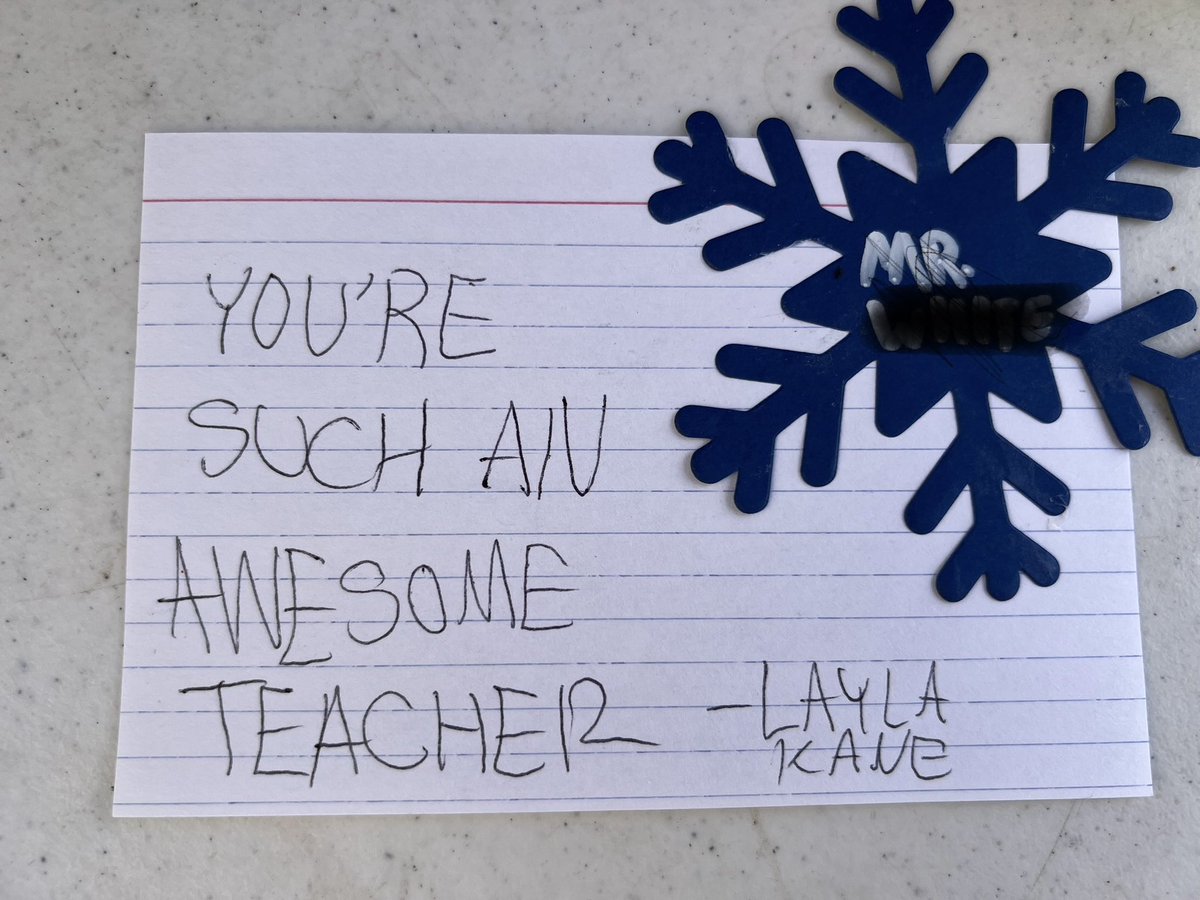 MR.
YOU'RE
SUCH AN
AWESOME
TEACHER
-LAYLA
KANE